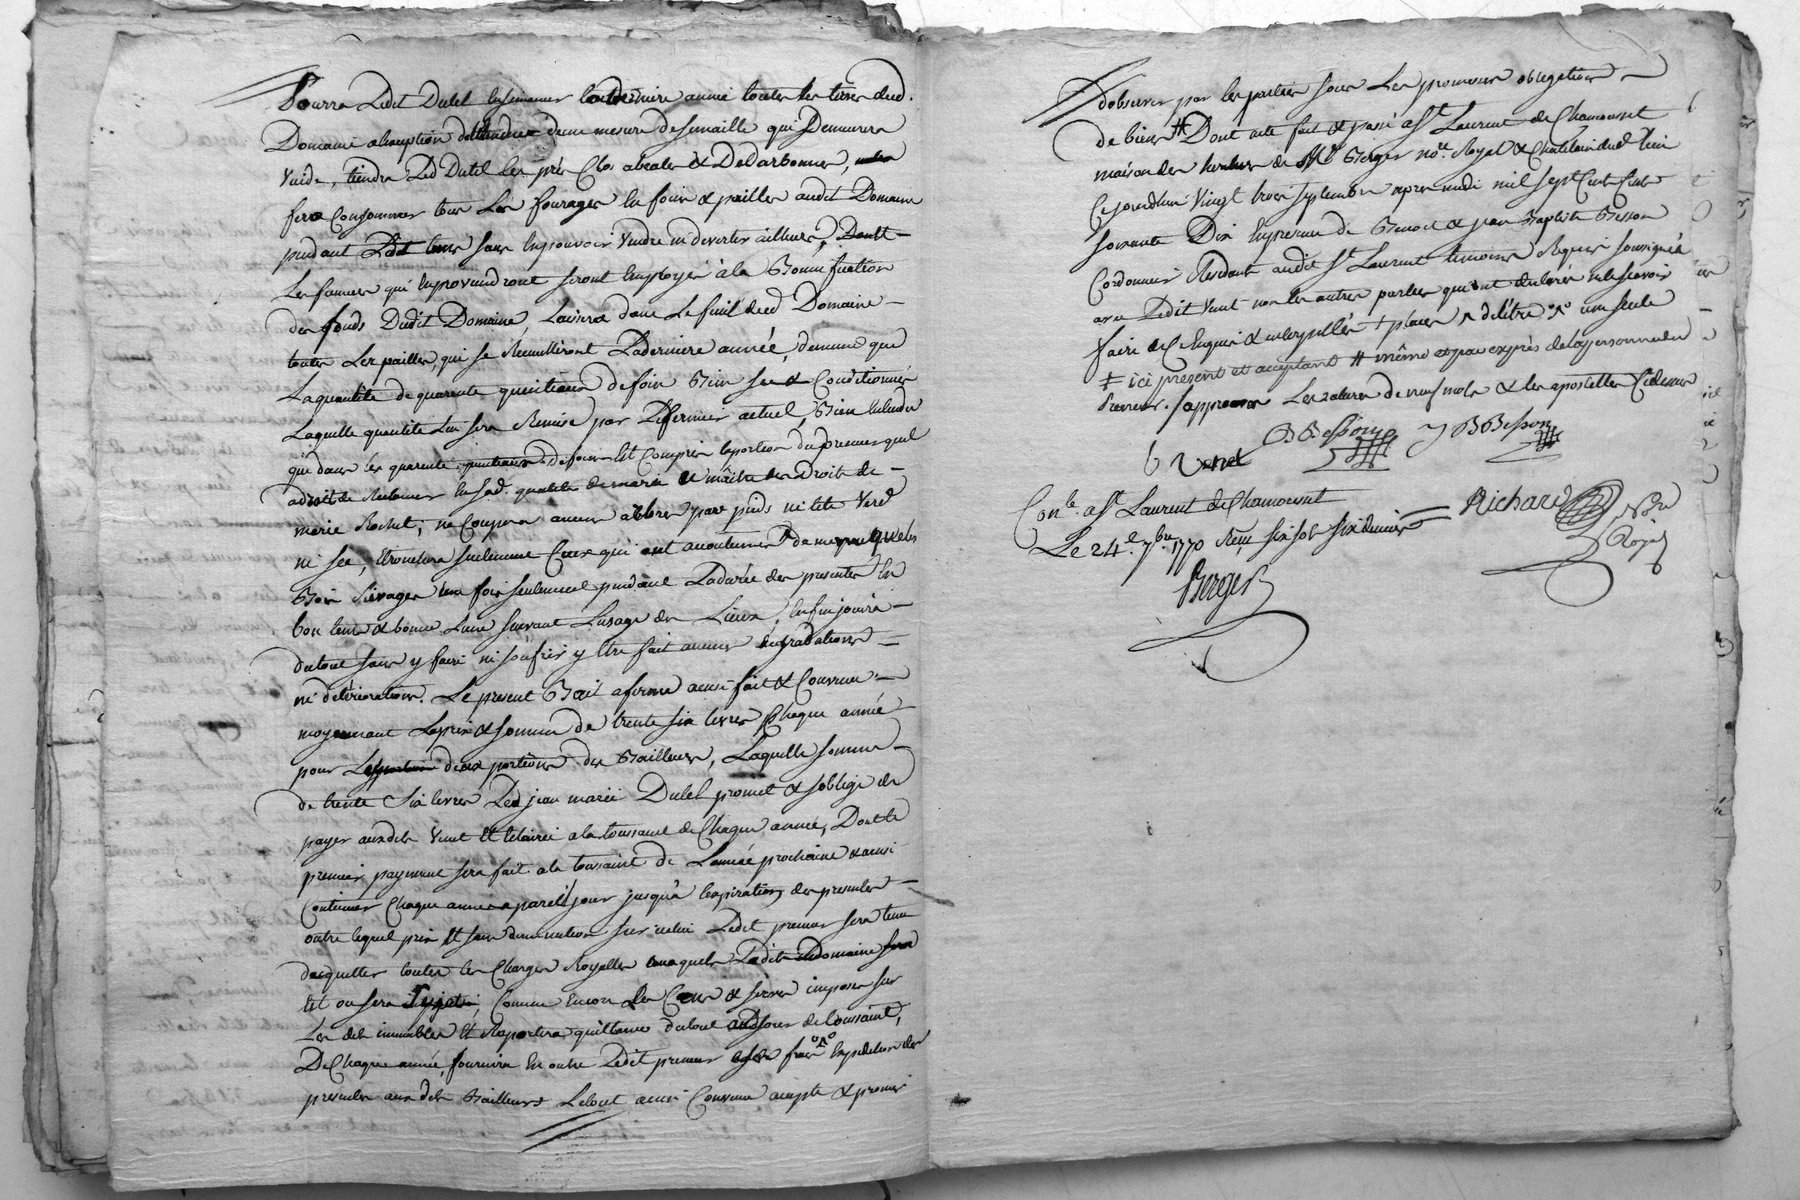 Pourra Ledit Dulel Ensemencer La derniere année toutes les terres dud.
Domaine a Exception de deux mesures de semaille qui Demeurera
Vuide, tiendra Led Dulel Les prés Clos
fera Consommer tous Les fourages En foin & pailles audit Domaine
pendant sans Enpouvoir Vendre ni divertir ailleurs,
Les fumiers qui Enproviendront seront Employés à la Bonnification
des fonds Dudit Domaine, Laissera dans Le fenil dud Domaine
toutes Les pailles qui se Recuilliront La derniere année, dememe que
La quantité de quarante quintaux de foin Bien sec & Conditionné
Laquelle quantité Lui sera Remise par Le fermier actuel, Bien Entendu
que dans les quarante quintaux de foin Est Compris la portion du preneur quil
a droit de Reclamer En sad. qualité de mari & maitre des Droits de
marie Rochet; ne Coupera aucuns arbres par pieds ni tete Verd
ni sec, Ebranchera seulement Ceux qui ont accoutumés de meme que les
Bois une fois seulement pendant La durée des presentes En
bon tems & bonne Lune suivant Lusage des Lieux, Enfin jouira
du tout sans y faire ni soufrir y Etre fait aucunes degradations
ni deteriorations. Le present Bail a ferme ainsi fait & Convenu
moyennant Le prix & somme de trente six livres Chaque année
pour deux portions des Bailleurs, Laquelle somme
de trente Six livres Led jean marie Dulel promet & soblige de
payer auxdits Venet Et a la toussaint de Chaque année, Dont le
premier payement sera fait a la toussaint de Lannée prochaine & ainsi
Continuer Chaque année a pareil jour jusqu'a lexpiration des presentes
outre lequel prix Et sans diminution sur icelui Ledit preneur sera tenu
dacquitter toutes les Charges Royalles auxquels Ledit Domaine
Est ou sera Sujet, Comme Encore Les Cens & servis imposés sur
Les dits immeubles Et Raportera quittance du tout aud jour de Toussaint,
De Chaque année, fournira En outre Ledit preneur frais Expedition des
presentes aux dits Bailleurs Le tout ainsi Convenu accepté & promis
dobserver par les parties sous Les promesses obligations
de biens # Dont acte fait & passé a St Laurent de Chamousset
maison des heritiers de Me Berger nore. Royal & Chatelain dud Lieu
Cejourdhui Vingt trois septembre apres midi mil sept Cent
soixante Dix En presence de Benoit & jean Baptiste Besson
Cordonniers Residants audit St Laurent temoins Requis soussignés
avec Ledit Venet non les autres parties qui ont declarés ne le scavoir
faire de Ce Enquis & interpellés
‡ ici présent et acceptant # même et par exprès de la personne du
Preneur. japprouve Les ratures de neuf mots & les apostilles Cidessus
b Venet B Besson J B Besson
Conle. a St Laurent de Chamousset
Le 24e. 7bre. 1770 Reçu six sols six deniers
Richard
Berger